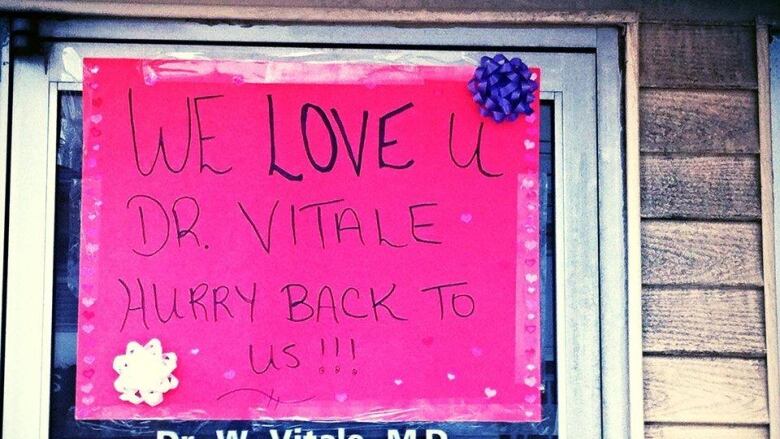 WE LOVE U
DR. VITALE
HURRY BACK TO
US !!!
Dr. W. Vitale, M.D.